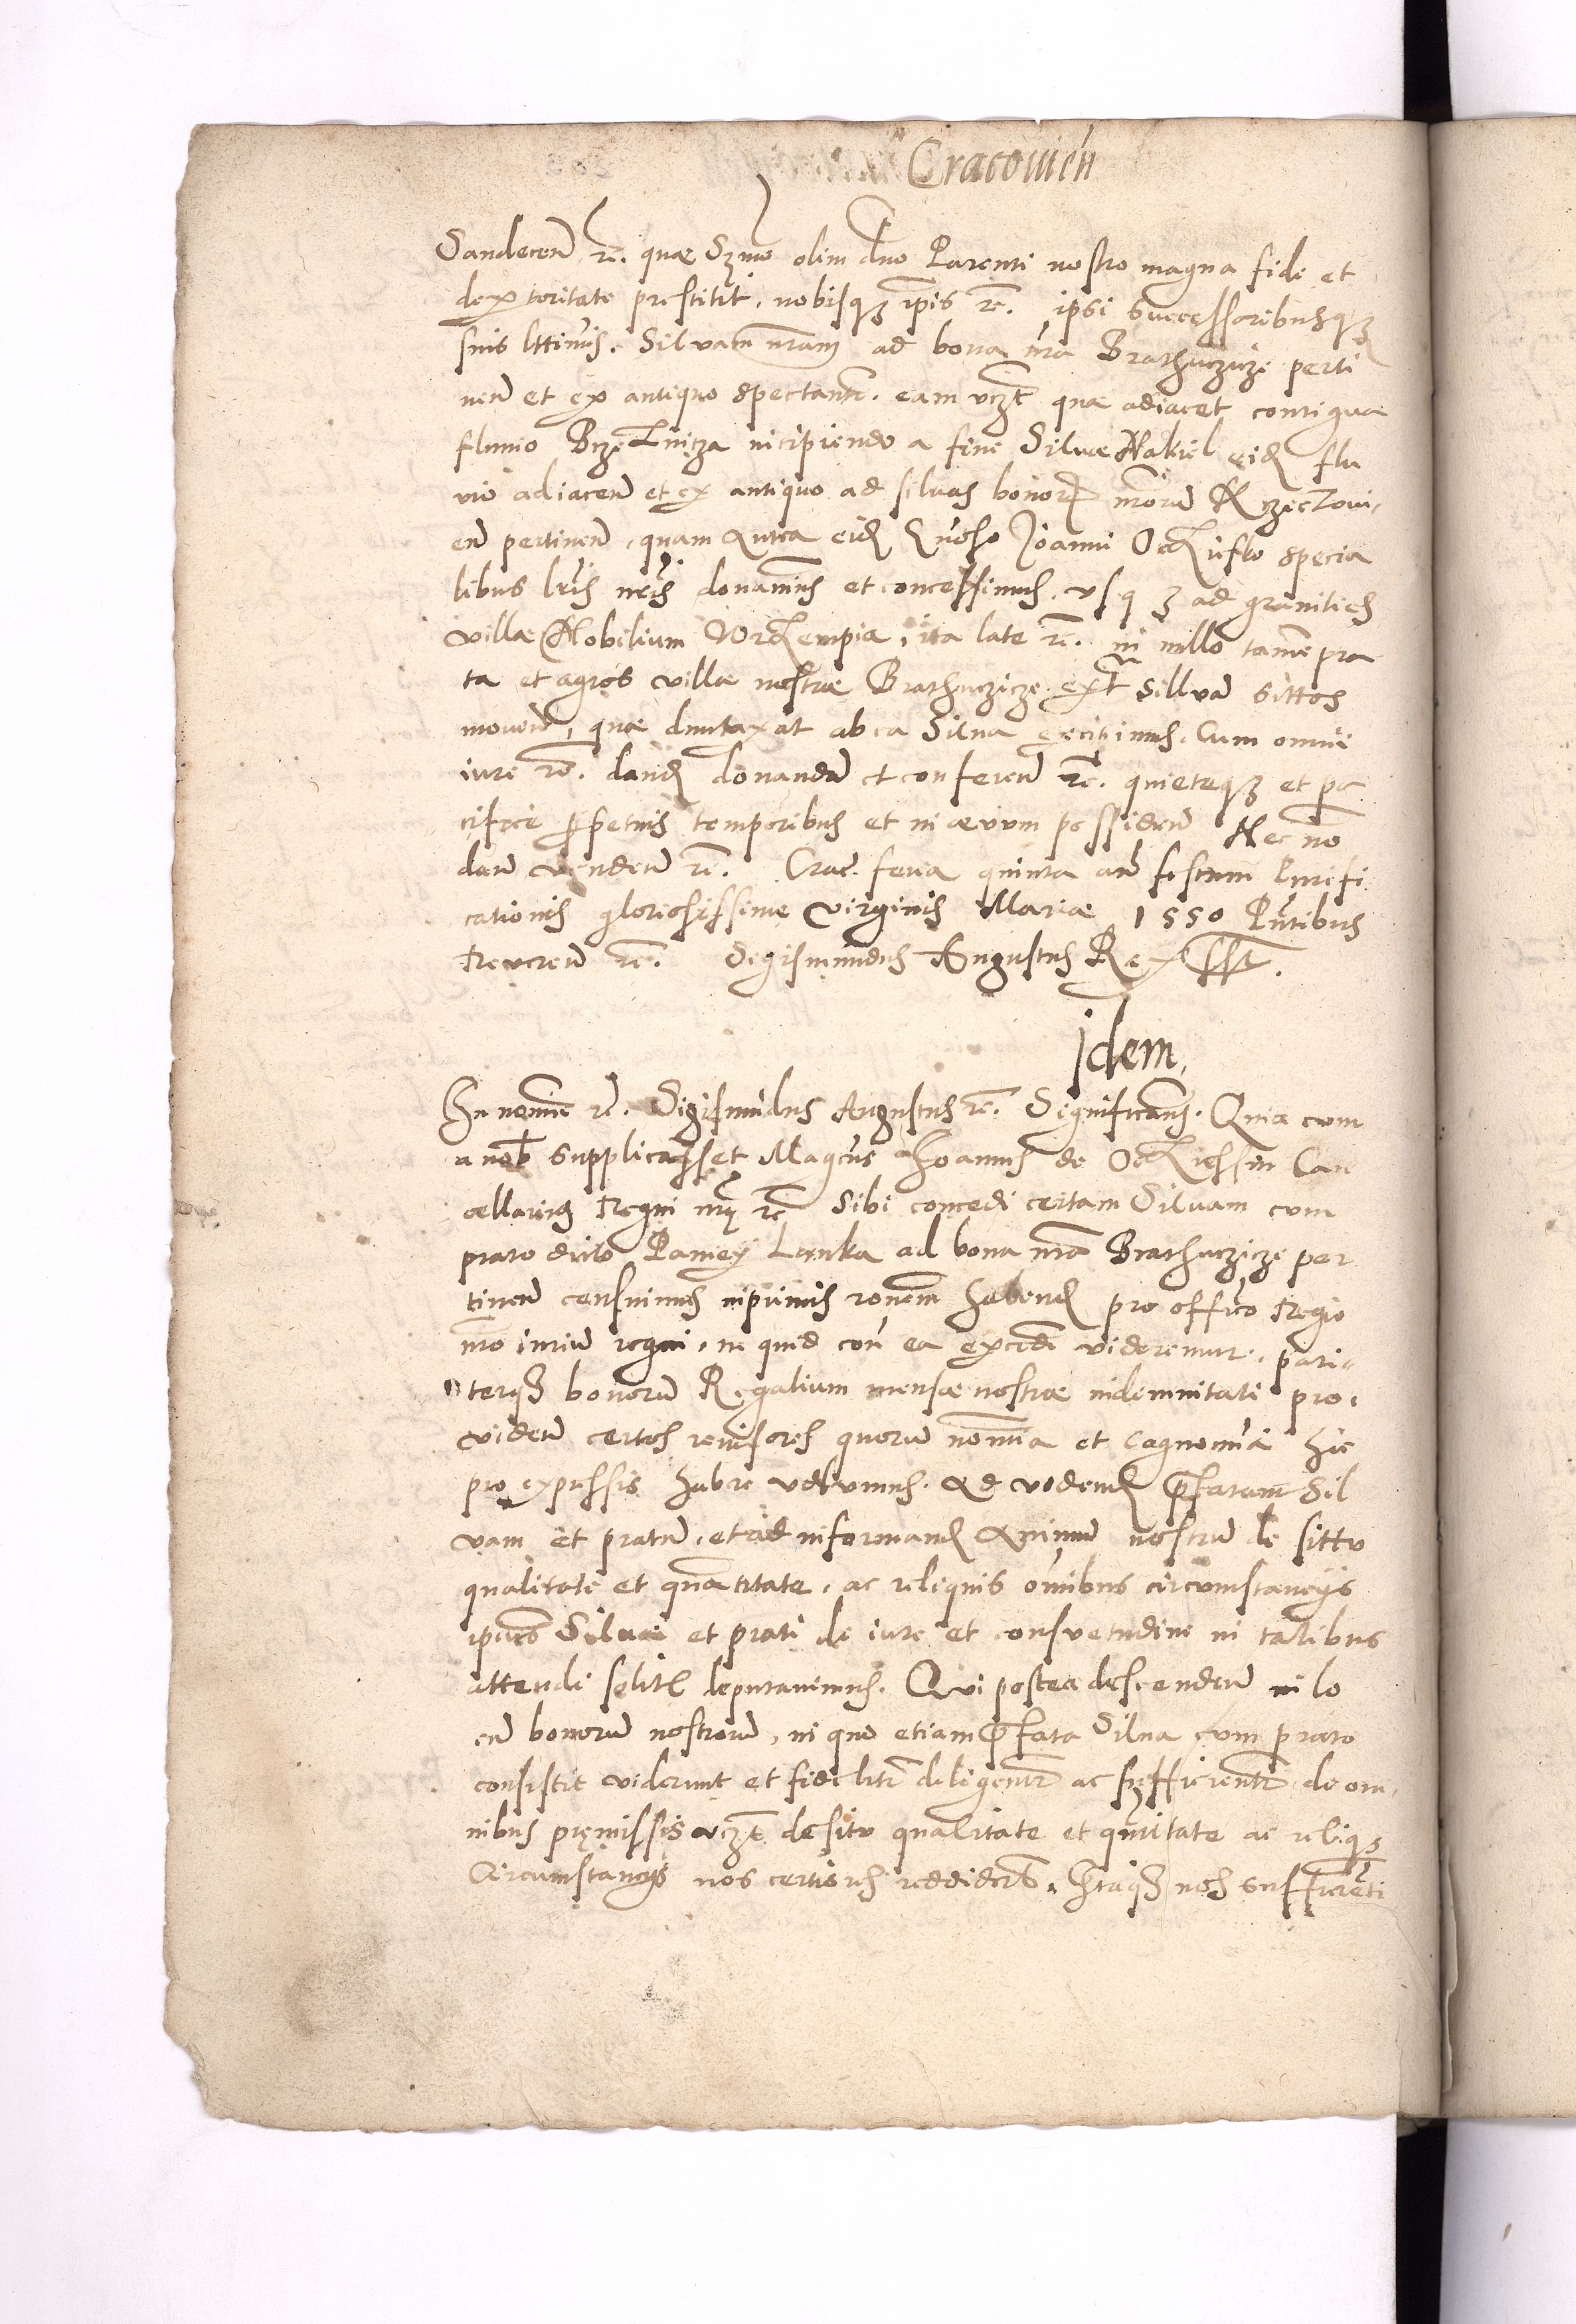 Cracouien
Sandecen rc. quæ Szmo olim dno Parenti nostro magna fide et
dexteritate prestitit, nobisqz ipis rc. ipsi successoribusqz
suis lttimis. Siluam nram ad bona nra Brathuczicze perti
nen et ex antiquo spectantem. eam vczt quæ adiacet contigua
fluuio incipiendo a fine Siluæ Nakiel eid flu
uio adiacen et ex antiquo ad siluas bonor nrorum
en pertinen, quam antea eid Gnoso Joanni Oczkiesko specia
libus lris nris donauimus et concessimus, vsqz ad granities
villæ Nobilium ita late rc. in nullo tamen pra
ta et agros villæ nostræ Brathuczicze ext Siluam sittos
mouen, quæ duntaxat ab ea Silua excipimus. Cum omni
iure rc. dand donandum et conferen rc. quieteqz et pa
cifice perpetuis temporibus et in æuum possiden Nec non
dan venden rc. Crac. feria quinta an festum Purifi
cationis gloriosissime virginis Mariæ 1550 Pntibus
Reueren rc. Sigismundus Augustus Rex sst.
Idem,
In nomine rc. Sigismundus Augustus rc. Significamus. Quia cum
a nob supplicasset Magcus Joannes de Oczkiessin Can
cellarius Regni nri rc sibi concedi certam Siluam cum
prato dicto Paniey Lanka ad bona nra Brathuczicze per
tinen censuimus inprimis ronem habend pro officio Regio
nro iurium regni, ne quid con ea excedi videremur, pari
terqz bonorum Regalium mensæ nostræ indemnitati pro,
viden certos reuisores quorum nomina et cognomina hic
pro expressis habere volumus. Ad vidend prefatam Sil
uam et pratum, et ad informand animum nostrum de sittu
qualitate et quantitate, ac reliquis omnibus circumstancijs
ipsius Siluæ et prati de iure et consuetudine in talibus
attendi solitis deputauimus. Qui postea descenden in lo
cum bonorum nostrorum, in quo etiam prefata Silua cum prato
consistit viderunt et fideliter diligenter ac sufficienter de om,
nibus pręmissis vczt de situ qualitate et quantitate ac reliqz
Circumstancijs nos certiores reddiderunt, Itaqz nos sufficienti